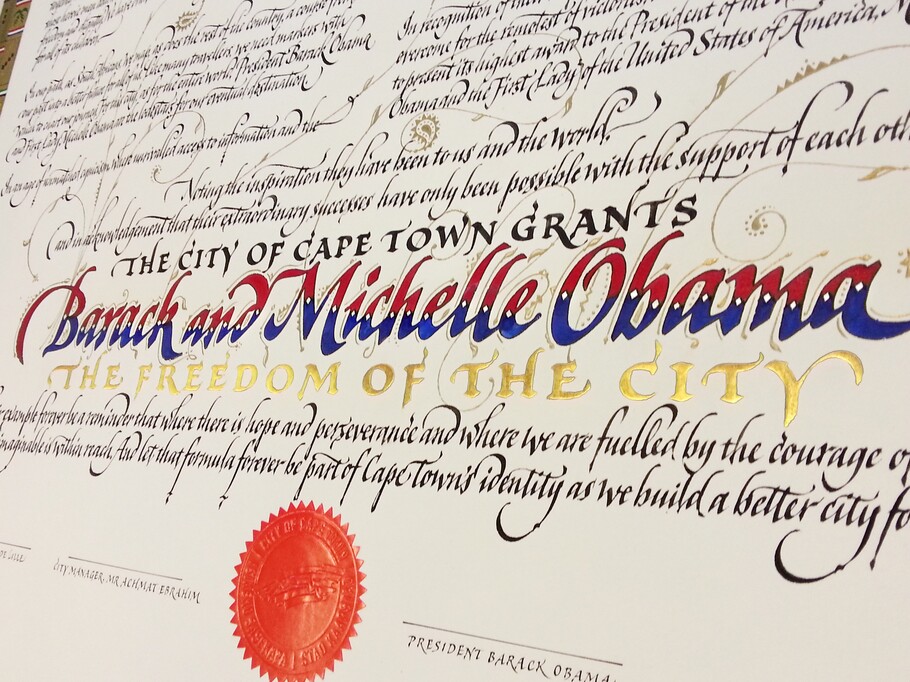 finally for answers.
In our path, as South Africans, we must, as does the rest of the country, a course from
our past into a better future for all. And like many travellers, we need markers with
which to chart our journey. For this city, as for the entire world, President Barack Obama
and First Lady Michelle Obama are the lodestars for our eventual destination.
In an age of accomplished cynicism, where unrivalled access to information and the
In recognition of their
overcome for the remotest of victories
to present its highest award to the President of the
Obama and the First Lady of the United States of America, M
Noting the inspiration they have been to us and the world,
and in acknowledgement that their extraordinary successes have only been possible with the support of each oth
THE CITY OF CAPE TOWN GRANTS
Barack and Michelle Obama
THE FREEDOM OF THE CITY
example forever be a reminder that where there is hope and perseverance and where we are fuelled by the courage o
imaginable is within reach. And let that formula forever be part of Cape Town's identity as we build a better city fo
DE LILLE
CITY MANAGER, MR ACHMAT EBRAHIM
CITY OF CAPE TOWN
STAD KAAPSTAD
PRESIDENT BARACK OBAMA